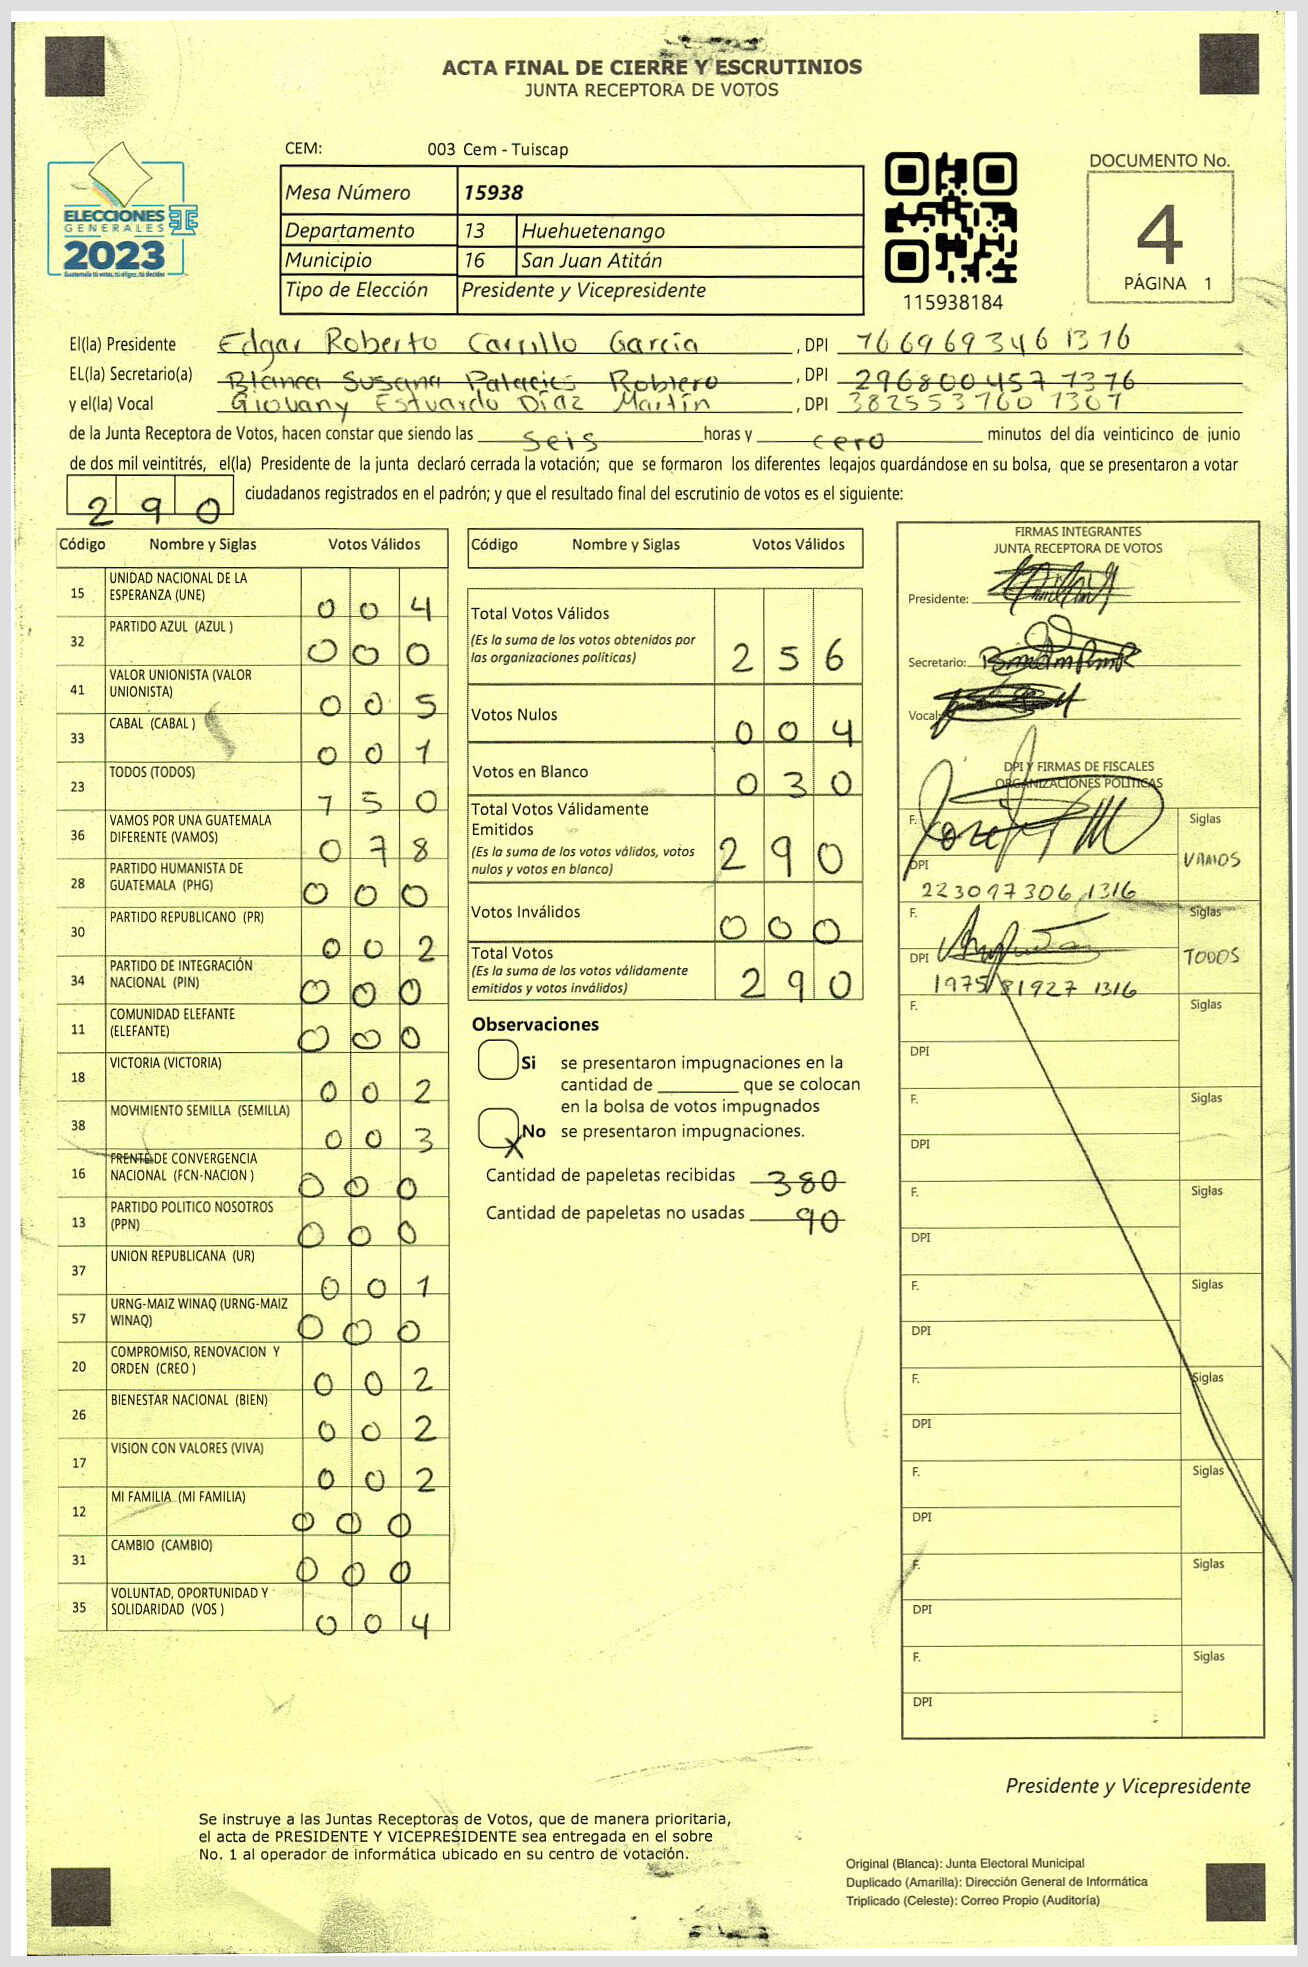 ACTA FINAL DE CIERRE Y ESCRUTINIOS
JUNTA RECEPTORA DE VOTOS
CEM: 003 Cem - Tuiscap
ELECCIONES
GENERALES
2023
Mesa Número 15938
Departamento 13 Huehuetenango
Municipio 16 San Juan Atitán
Tipo de Elección Presidente y Vicepresidente
115938184
DOCUMENTO No.
4
PÁGINA 1
El(la) Presidente Edgar Roberto Carrillo García , DPI 766969346 1316
EL(la) Secretario(a) Blanca Susana Palacios Roblero , DPI
y el(la) Vocal Giovany Estuardo Díaz Martín , DPI 382553760 1307
de la Junta Receptora de Votos, hacen constar que siendo las seis horas y cero minutos del día veinticinco de junio
de dos mil veintitrés, el(la) Presidente de la junta declaró cerrada la votación; que se formaron los diferentes legajos guardándose en su bolsa, que se presentaron a votar
290 ciudadanos registrados en el padrón; y que el resultado final del escrutinio de votos es el siguiente:
Código Nombre y Siglas Votos Válidos
15 UNIDAD NACIONAL DE LA
ESPERANZA (UNE) 004
32 PARTIDO AZUL (AZUL ) 000
41 VALOR UNIONISTA (VALOR
UNIONISTA) 005
33 CABAL (CABAL ) 001
23 TODOS (TODOS) 150
36 VAMOS POR UNA GUATEMALA
DIFERENTE (VAMOS) 078
28 PARTIDO HUMANISTA DE
GUATEMALA (PHG) 000
30 PARTIDO REPUBLICANO (PR) 002
34 PARTIDO DE INTEGRACIÓN
NACIONAL (PIN) 000
11 COMUNIDAD ELEFANTE
(ELEFANTE) 000
18 VICTORIA (VICTORIA) 002
38 MOVIMIENTO SEMILLA (SEMILLA) 003
16 FRENTE DE CONVERGENCIA
NACIONAL (FCN-NACION ) 000
13 PARTIDO POLITICO NOSOTROS
(PPN) 000
37 UNION REPUBLICANA (UR) 001
57 URNG-MAIZ WINAQ (URNG-MAIZ
WINAQ) 000
20 COMPROMISO, RENOVACION Y
ORDEN (CREO ) 002
26 BIENESTAR NACIONAL (BIEN) 002
17 VISION CON VALORES (VIVA) 002
12 MI FAMILIA (MI FAMILIA) 000
31 CAMBIO (CAMBIO) 000
35 VOLUNTAD, OPORTUNIDAD Y
SOLIDARIDAD (VOS ) 004
Código Nombre y Siglas Votos Válidos
Total Votos Válidos
(Es la suma de los votos obtenidos por
las organizaciones políticas) 256
Votos Nulos 004
Votos en Blanco 030
Total Votos Válidamente
Emitidos
(Es la suma de los votos válidos, votos
nulos y votos en blanco) 290
Votos Inválidos 000
Total Votos
(Es la suma de los votos válidamente
emitidos y votos inválidos) 290
Observaciones
Si se presentaron impugnaciones en la
cantidad de ________ que se colocan
en la bolsa de votos impugnados
X No se presentaron impugnaciones.
Cantidad de papeletas recibidas 380
Cantidad de papeletas no usadas 90
FIRMAS INTEGRANTES
JUNTA RECEPTORA DE VOTOS
Presidente:
Secretario:
Vocal:
DPI Y FIRMAS DE FISCALES
ORGANIZACIONES POLÍTICAS
F. Siglas
DPI VAMOS
223097306 1316
F. Siglas
DPI TODOS
1975 81927 1316
F. Siglas
DPI
F. Siglas
DPI
F. Siglas
DPI
F. Siglas
DPI
F. Siglas
DPI
F. Siglas
DPI
F. Siglas
DPI
F. Siglas
DPI
Presidente y Vicepresidente
Se instruye a las Juntas Receptoras de Votos, que de manera prioritaria,
el acta de PRESIDENTE Y VICEPRESIDENTE sea entregada en el sobre
No. 1 al operador de informática ubicado en su centro de votación.
Original (Blanca): Junta Electoral Municipal
Duplicado (Amarilla): Dirección General de Informática
Triplicado (Celeste): Correo Propio (Auditoría)